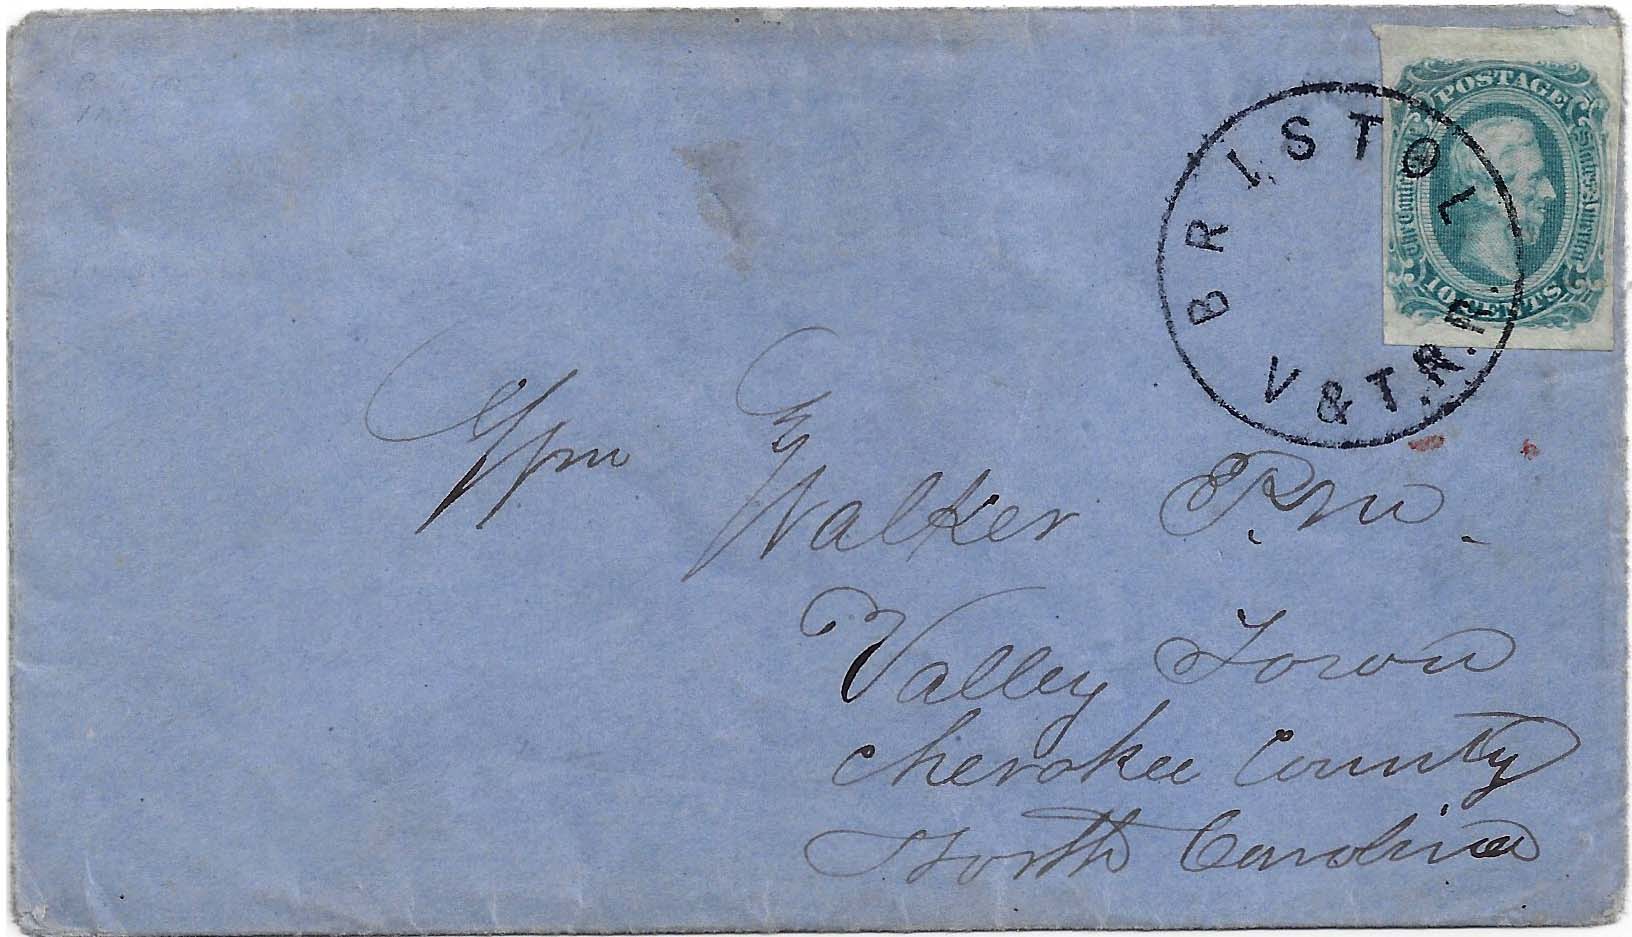 POSTAGE
The Confederate States of America
10 CENTS
BRISTOL
V & T.R.R.
Wm Walker P.M.
Valley Town
Cherokee County
North Carolina